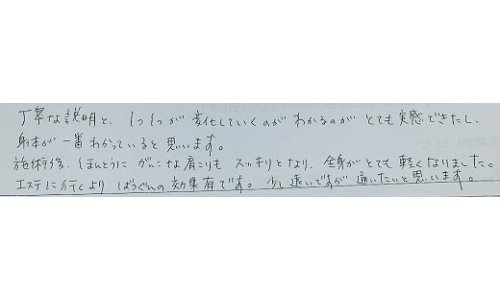 丁寧な説明と、1つ1つが変化していくのがわかるのがとても実感できたし、
身体が一番わかっていると思います。
施術後、ほんとうにがんこな肩こりもスッキリとなり、全身がとても軽くなりました。
エステに行くよりばつぐんの効果有です。少し遠いですが通いたいと思います。